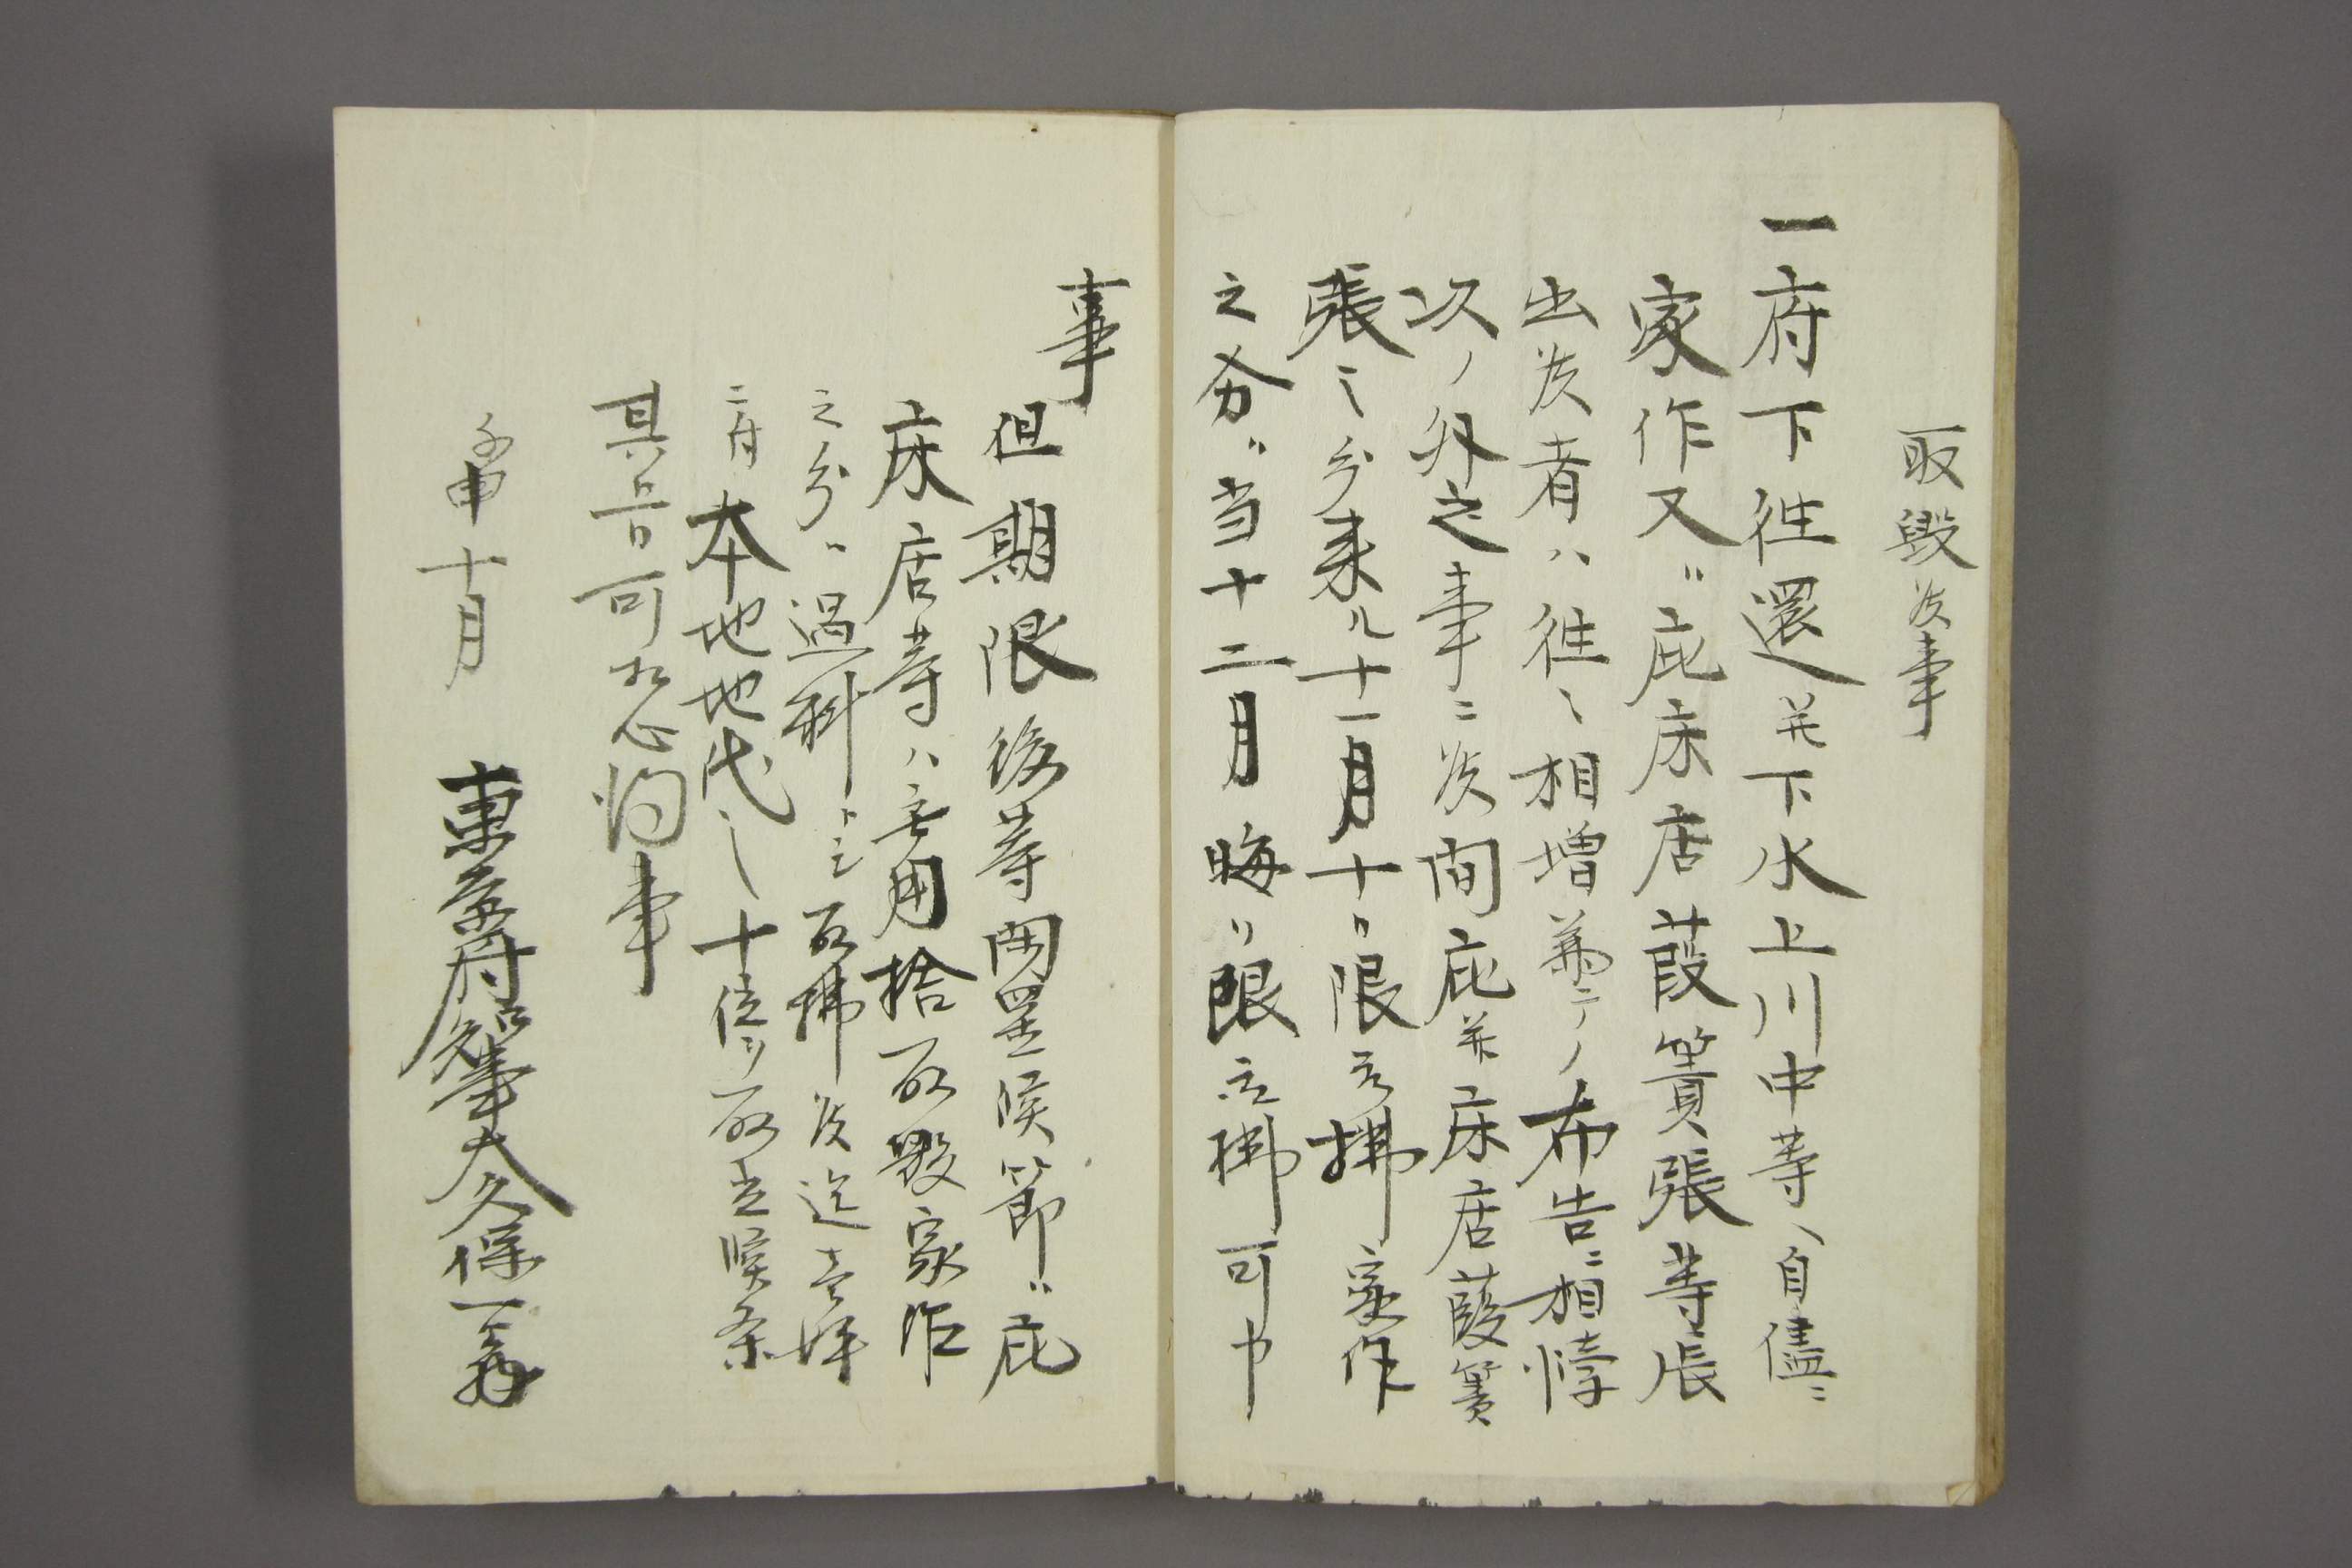 取毀候事
一府下往還并下水上川中等ヘ自儘ニ
家作又ハ庇床店葭簀張等張
出候者ハ往々相増兼々ノ布告ニ相悖
以ノ外之事ニ候間庇并床店葭簀
張之分来ル十一月十日限取拂家作
之分ハ当十二月晦日限取拂可申
事
但期限後等閑置候節ハ庇
床店等ハ無用捨取毀家作
之分ハ過料トシテ取拂候迄壱坪
ニ付本地地代之十倍ツヽ取立候条
其旨可相心得事
壬申十月 東京府知事大久保一翁